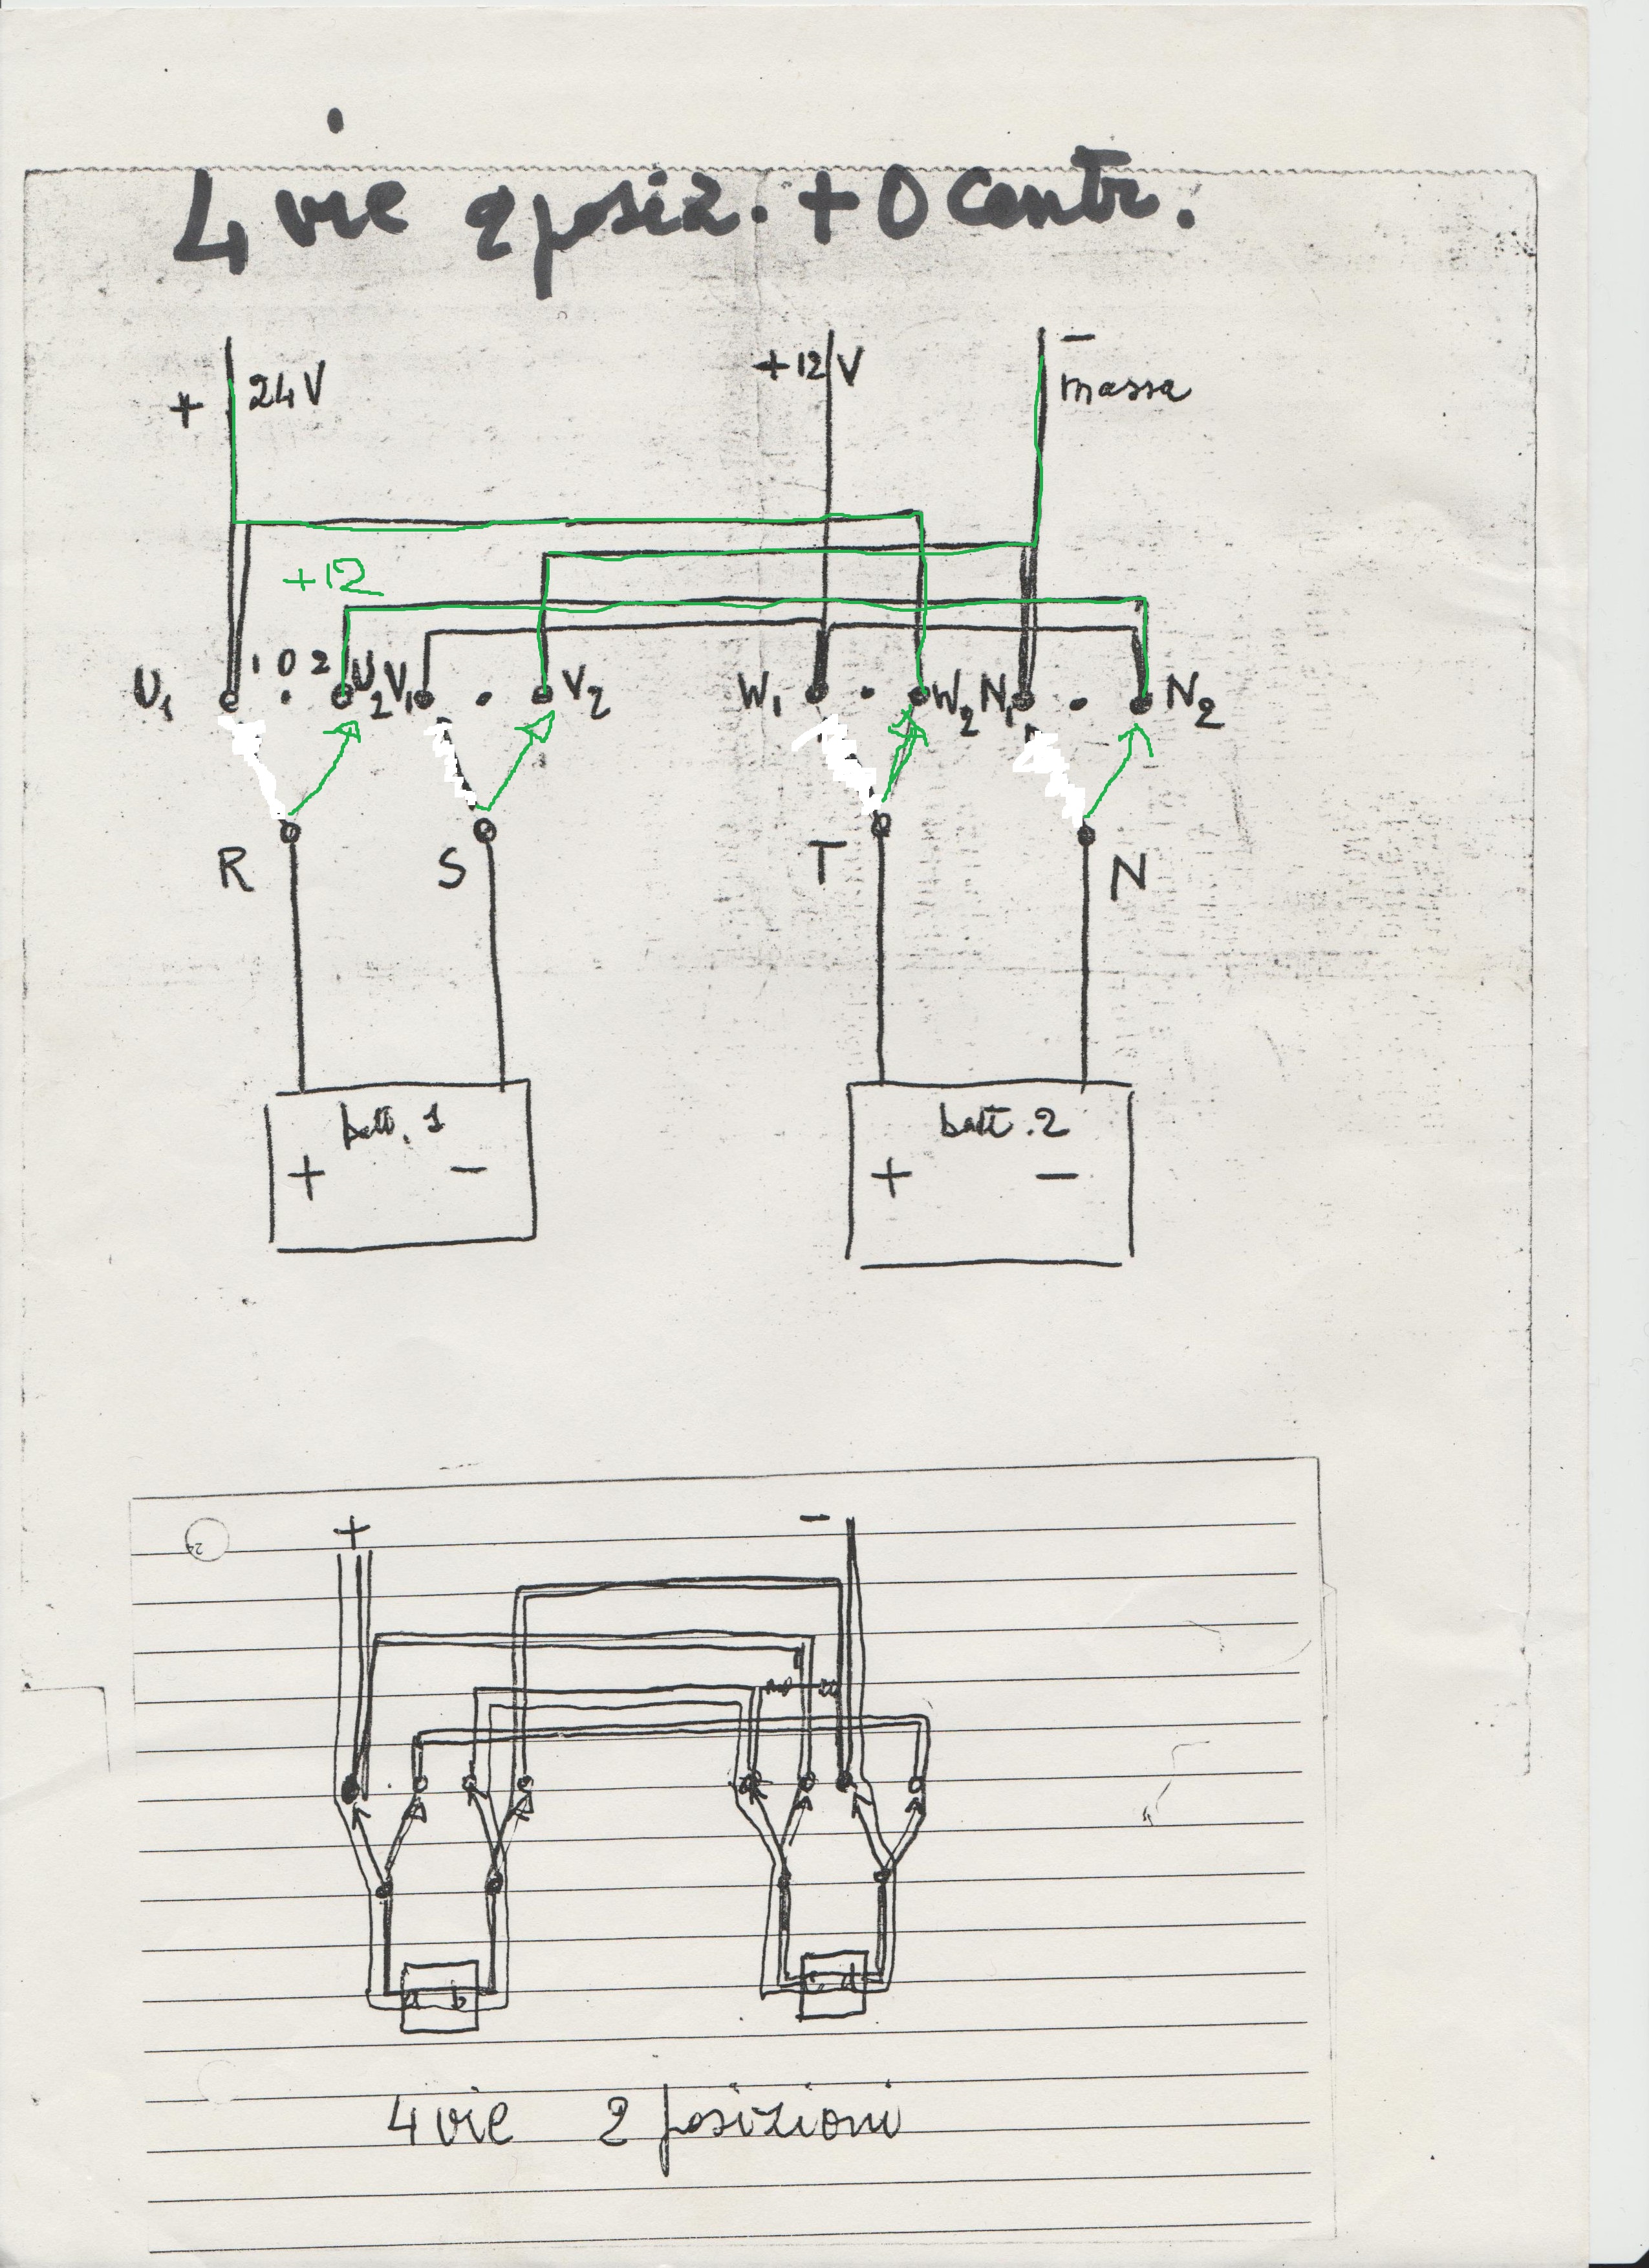 4 vie 2 posiz. + 0 centr.
+ 24V +12V - massa
+12
U1 1 0 2 U2 V1 V2 W1 W2 N1 N2
R S T N
batt. 1 batt. 2
+ - + -
+ -
a b c d
4 vie 2 posizioni